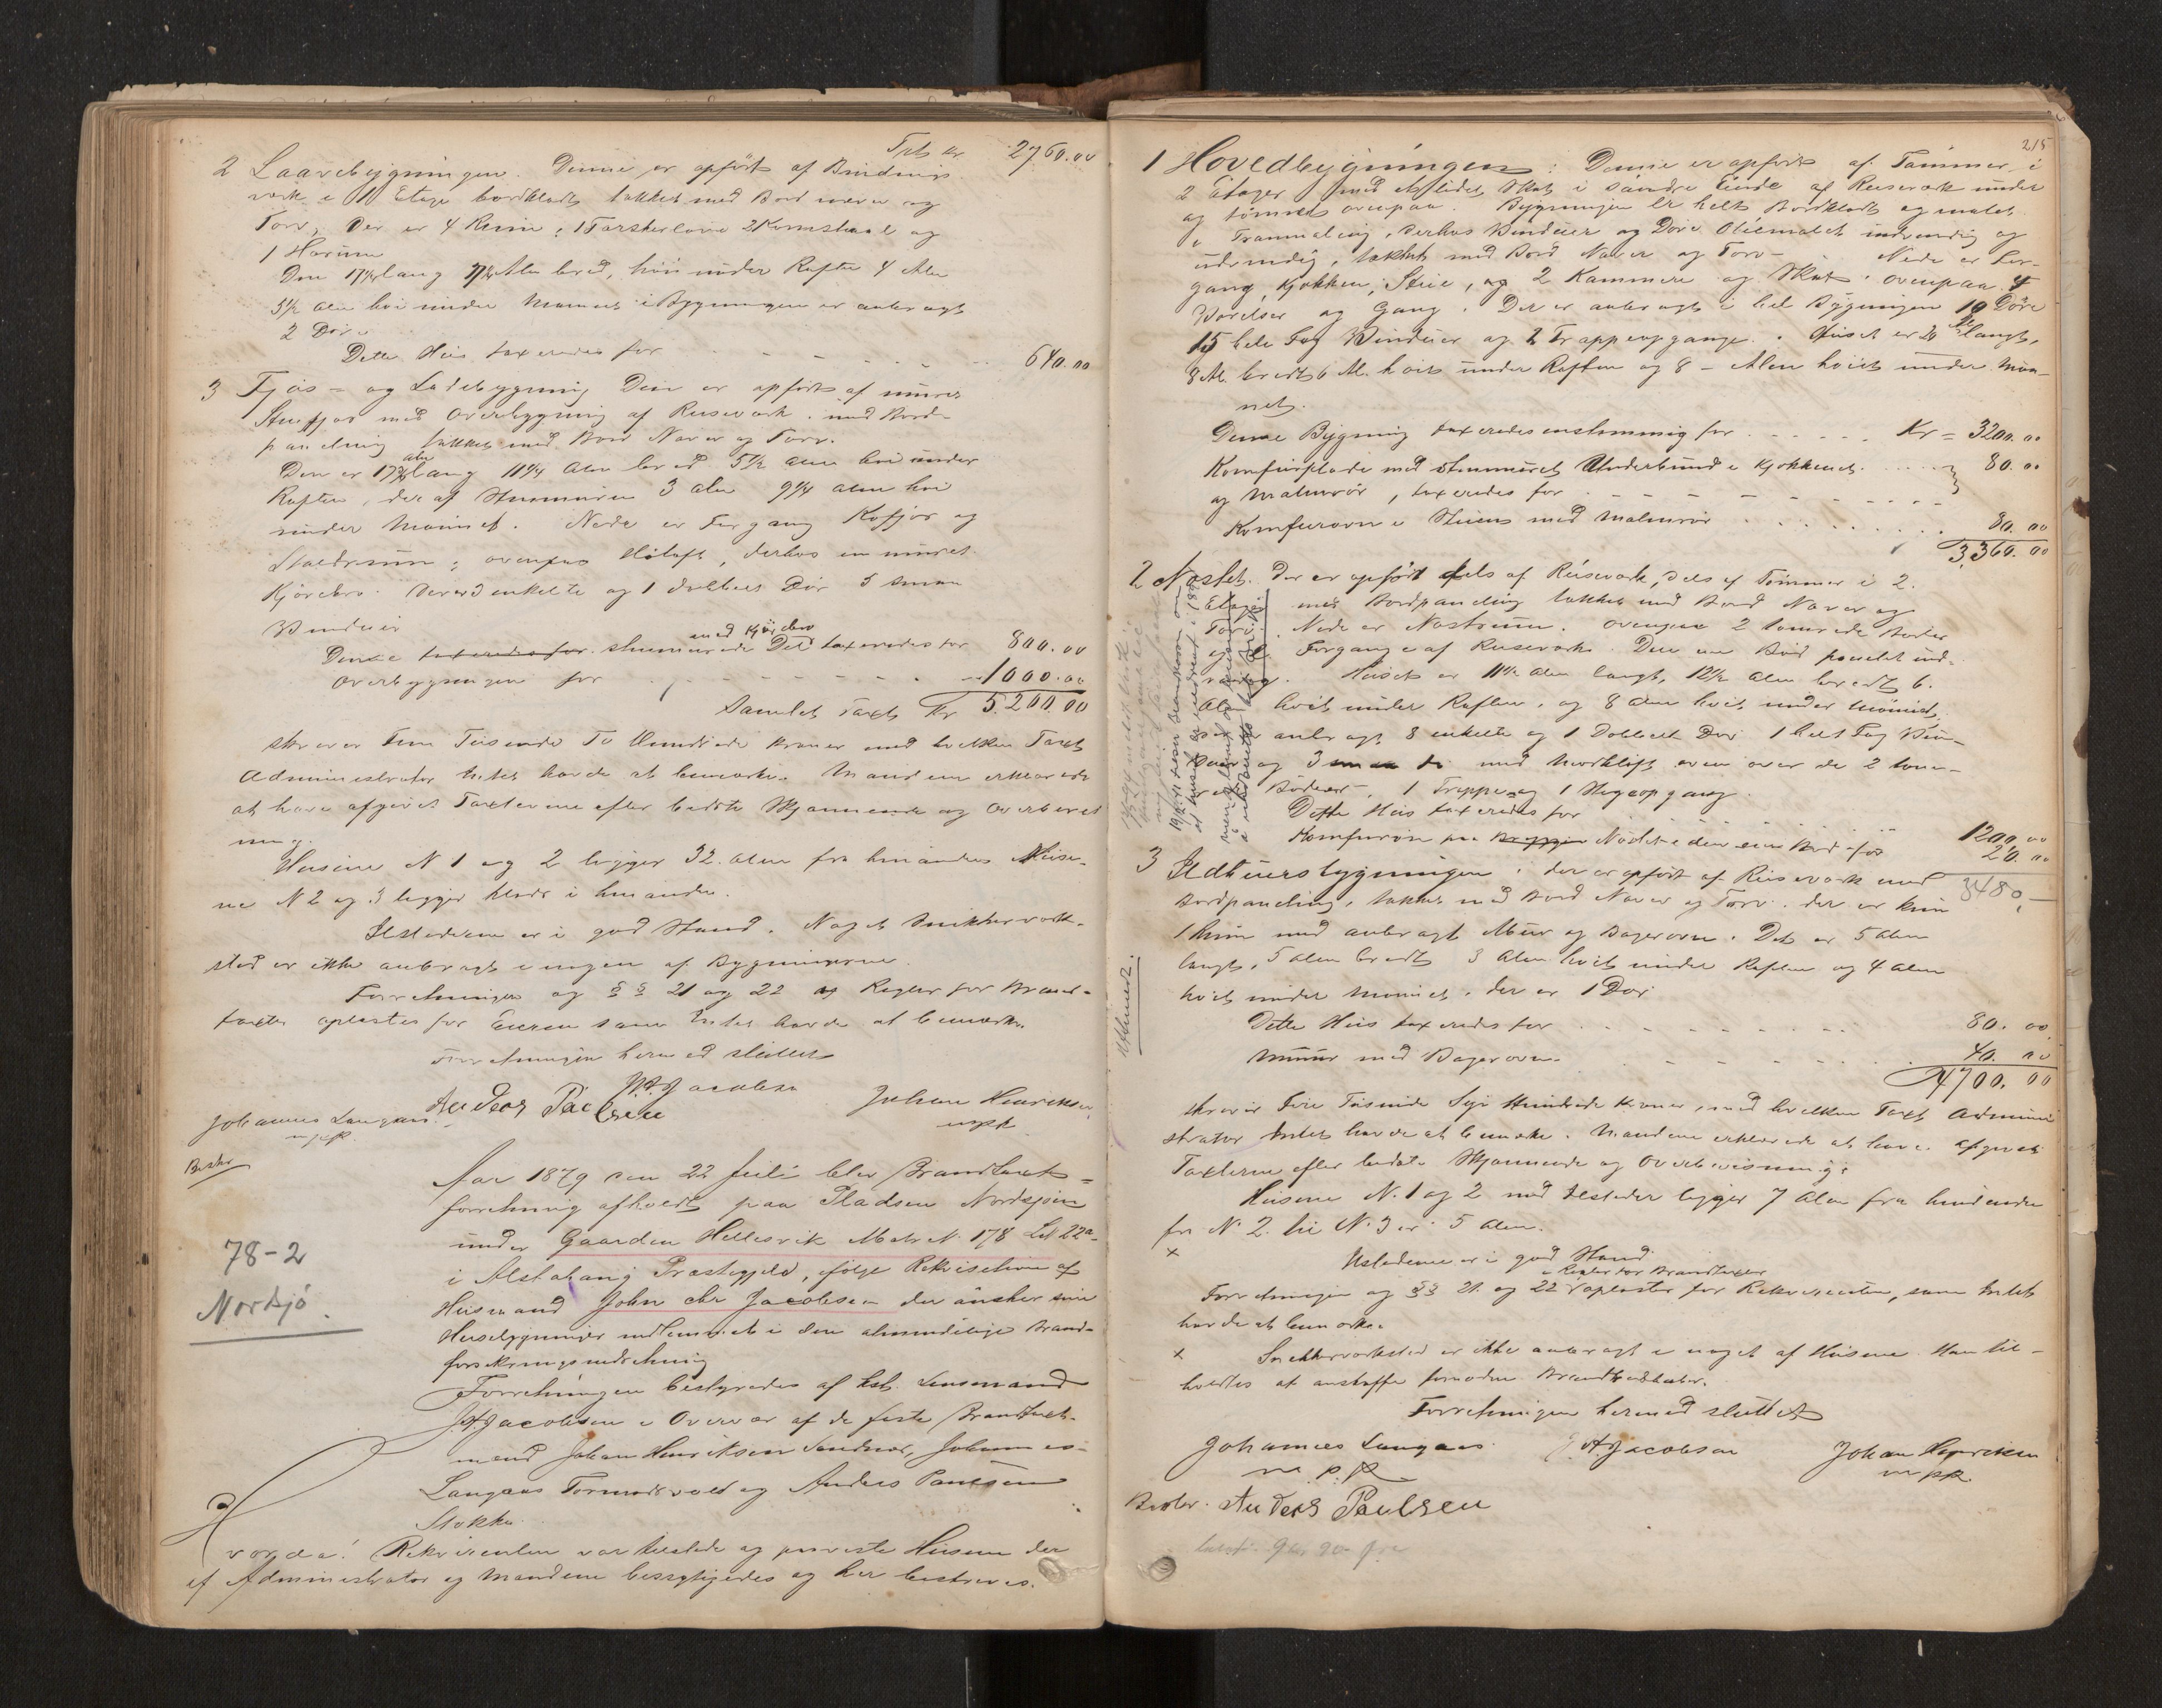 Trsp Kr 2760.00
2 Laavebygningen. Denne er opført af Bindings
værk i 1 Etage bordklædt takket med Bord næver og
Torv, der er 4 Rum, 1 Tærskerlove 2 Kornstaal og
1 Hørum
Den 17¼ lang 7¼ Alen bred, høi under Raftet 4 Alen
5½ Alen høi under Mønnet i Bygningen er anbragt
2 Døre
Dette Hus taxeredes for 640.00
3 Fjøs- og Ladebygning Den er opført af muret
Stenfjøs med Overbygning af Reisværk med Bord-
paneling takket med Bord Næver og Torv.
Den er 17¾ alen lang 11¼ Alen bred 5½ Alen høi under
Raftet, der af Stenmuren 3 Alen 9¼ Alen høi
under Mønnet. Nede er Forgang Kofjøs og
Staldrum; ovenpaa Høloft, derhos en muret
Kjørebro. Der er 3 enkelte og 1 dobbelt Dør 5 smaa
Vinduer
Denne taxeredes for. stenmurede Del med Kjørebro taxeredes for 800.00
Overbygningen for 1000.00
Samlet Taxt Kr 5.200.00
skriver Fem Tusinde To Hundrede Kroner med hvilken Taxt
Administrator Intet havde at bemærke. Mændene erklærede
at have afgivet Taxterne efter bedste Skjønnende og Overbevis
ning.
Husene N 1 og 2 ligger 32 Alen fra hinanden Huse-
ne N 2 og 3 ligger klods i hinanden.
Ildstederne er i god Stand. Noget Snikkerværk-
sted er ikke anbragt i nogen af Bygningerne.
Forretningen og §§ 21 og 22 af Regler for Brand-
taxter oplæstes for Eieren som Intet havde at bemærke.
Forretningen hermed sluttet
J.A. Jacobsen
Johannes Langaas Anders Paulsen Johan Henriksen
m.p.P. mpP
Besler
Aar 1879 den 22 Juli blev Brandtaxt-
forretning afholdt paa Pladsen Nordsjøen
under Gaarden Hellesvik Matr N. 178 Lit 22a-
i Alstahaug Præstegjeld, ifølge Rekvisition af
Husmand John Chr Jacobsen der ønsker sine
Husebygninger indlemmet i den almindelige Brand-
forsikringsindretning
78-2
Nordsjø.
Forretningen bestyredes af kst. Lensmand
J.A. Jacobsen i Overvær af de faste Brandtaxt-
mænd Johan Henriksen Sandnes, Johannes
Langaas Tormodsvold og Anders Paulsen
Stokke.
vorda! Rekvirenten var tilstede og paaviste Husene der
af Administrator og Mændene besigtigedes og her beskrives.
215
1 Hovedbygningen: Denne er opført af Tømmer i
2 Etager med et lidet Skot i søndre Ende af Reisværk under
og tømret ovenpaa. Bygningen er helt Bordklædt og malet
i Tranmaling, derhos Vinduer og Døre Oliemalet indvendig og
udvendig, takket med Bord Næver og Torv. Nede er For-
gang, Kjøkken, Stue, og 2 Kammere og Skot. ovenpaa 4
Værelser og Gang. Der er anbragt i hel Bygningen 10 Døre
15 hele Fag Vinduer og 2 Trappeopgange. Huset er langt,
8 Al. bredt 6 Al. høit under Raftet og 8 Alen høit under Møn-
net.
Denne Bygning taxeredes enstemmig for Kr = 3200.00
Komfurplade med stenmuret Underbund i Kjøkkenet 80.00
og Malmrør, taxeredes for
Komfurovn i Stuen med Malmrør 80.00
3,360.00
2 Nøstet. Der er opført dels af Reisværk, dels af Tømmer i 2.
Etager med Bordpaneling takket med Bord Næver og
Torv. Nede er Nøstrum. ovenpaa 2 tømrede Boder
og Forgange af Reisværk. Den ene Bod panelet ind-
vendig. Huset er 11½ Alen langt, 12½ Alen bredt 6.
Alen høit under Raftet, og 8 Alen høit under Mønnet.
anbragt 8 enkelte og 1 Dobbelt Dør 1 helt Fag Vin-
duer og 3
1 Trappe og 1 Stigeopgang
Dette Hus taxeredes for 1200.00
Komfurovn paa Bryggen Nøstet i den ene Bod for 20.00
3480,-
3 Ildhusbygningen, der er opført af Reisværk med
Bordpaneling, takket med Bord Næver og Torv. der er kun
1 Rum med anbragt Mur og Bagerovn. Det er 5 Alen
langt, 5 Alen bredt 3 Alen høit under Raftet og 4 Alen
høit under Mønnet, der er 1 Dør
Utlinert.
Dette Hus taxeredes for 80.00
Muur med Bagerovn. 40.00
4700.00
skriver Fire Tusinde Syv Hundrede Kroner, med hvilken Taxt Admini
strator Intet havde at bemærke. Mændene erklærede at have afgivet
Taxterne efter bedste Skjønnende og Overbevisning.
Husene N. 1 og 2 med Ildsteder ligger 7 Alen fra hinanden
fra N. 2 til N. 3 er 5 Alen.
x Ildstederne er i god Stand.
Forretningen og §§ 21 og 22 i Regler for Brandtaxter oplæstes for Rekvirenten, som Intet
havde at bemærke.
x Snekkerværksted er ikke anbragt i noget af Husene. Han til-
holdtes at anskaffe fornødne Brandredskaber.
Forretningen hermed sluttet
Johannes Langaas J.A. Jacobsen Johan Henriksen
m.p.P. mpP.
Besler. Anders Paulsen